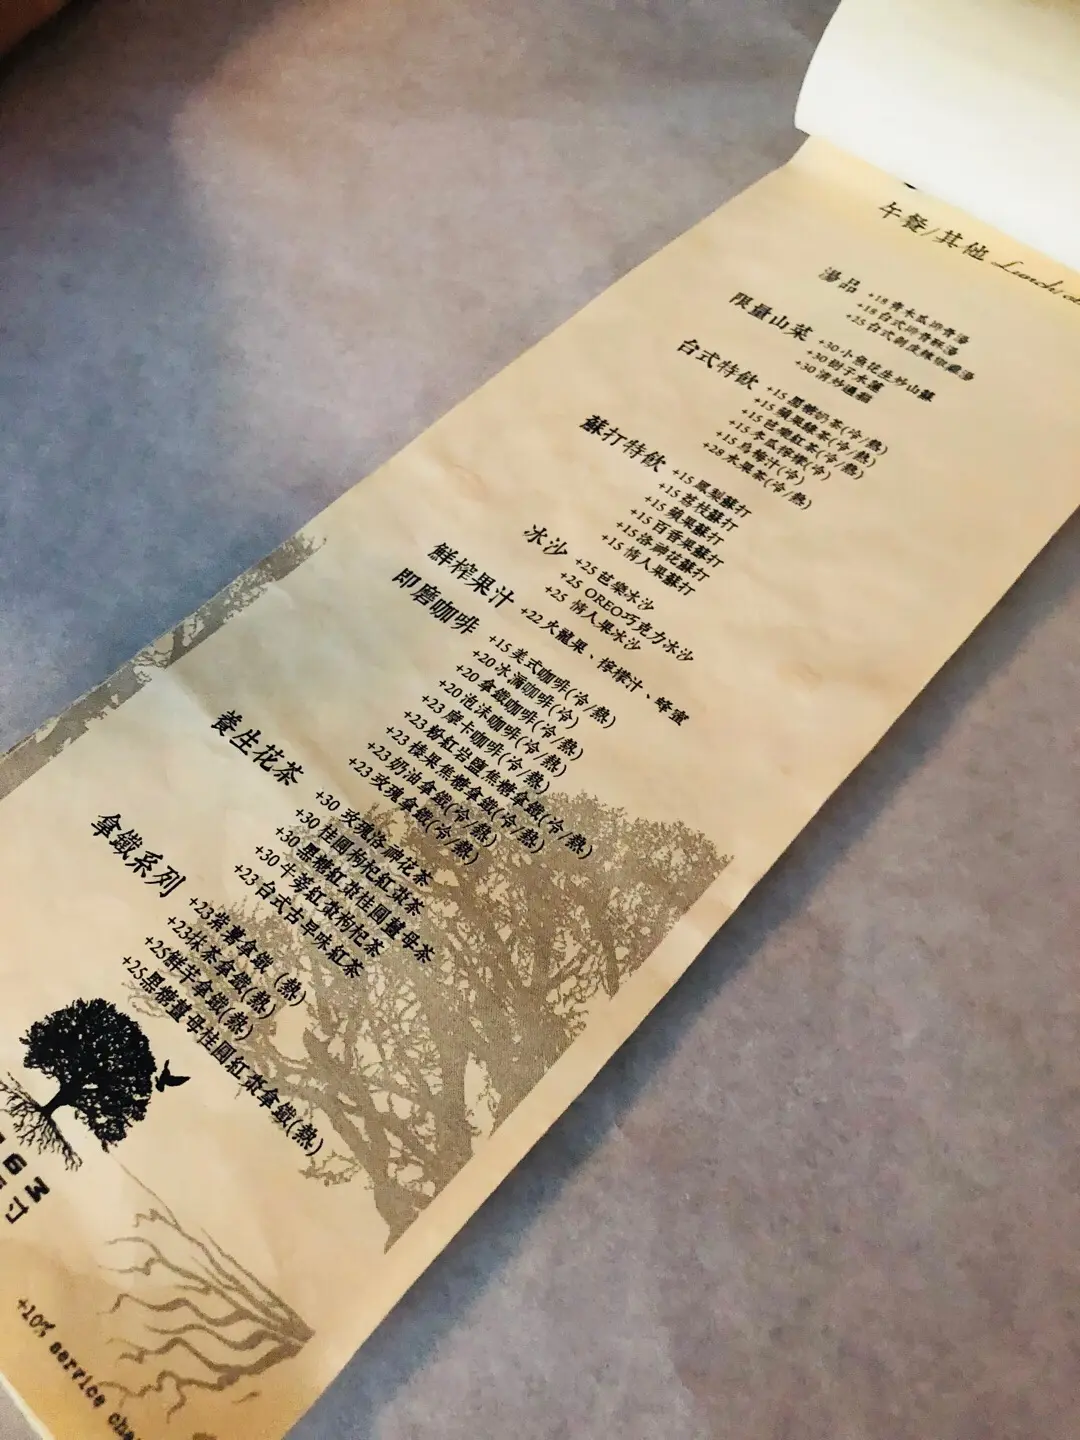 午餐/其他 Lunch/
湯品
+18 青木瓜排骨湯
+18 台式排骨酥湯
+25 台式剝皮辣椒雞湯
限量山菜
+30 小魚花生炒山蘇
+30 樹子水蓮
+30 清炒過貓
台式特飲
+15 黑糖奶茶(冷/熱)
+15 蘋果綠茶(冷/熱)
+15 芭樂紅茶(冷/熱)
+15 冬瓜檸檬(冷)
+15 烏梅汁(冷)
+28 水果茶(冷/熱)
蘇打特飲
+15 鳳梨蘇打
+15 荔枝蘇打
+15 蘋果蘇打
+15 百香果蘇打
+15 洛神花蘇打
+15 情人果蘇打
冰沙
+25 芭樂冰沙
+25 OREO巧克力冰沙
+25 情人果冰沙
鮮榨果汁
+22 火龍果、檸檬汁、蜂蜜
即磨咖啡
+15 美式咖啡(冷/熱)
+20 冰滴咖啡(冷)
+20 拿鐵咖啡(冷/熱)
+20 泡沫咖啡(冷/熱)
+23 摩卡咖啡(冷/熱)
+23 粉紅岩鹽焦糖拿鐵(冷/熱)
+23 榛果焦糖拿鐵(冷/熱)
+23 奶油拿鐵(冷/熱)
+23 玫瑰拿鐵(冷/熱)
養生花茶
+30 玫瑰洛神花茶
+30 桂圓枸杞紅棗茶
+30 黑糖紅棗桂圓薑母茶
+30 牛蒡紅棗枸杞茶
+23 台式古早味紅茶
拿鐵系列
+23紫薯拿鐵 (熱)
+23抹茶拿鐵(熱)
+25鮮芋拿鐵(熱)
+25黑糖薑母桂圓紅棗拿鐵(熱)
+10% service